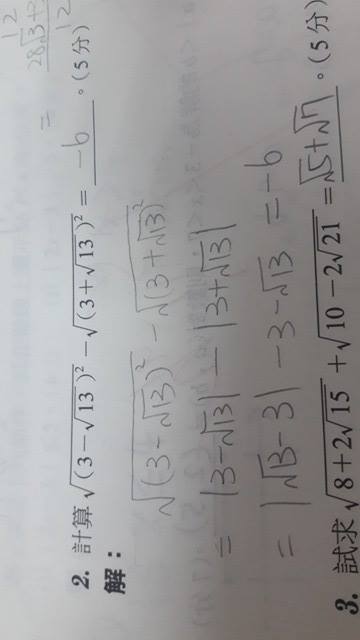 12
28√3+2
=
12
2. 計算√(3-√13)² - √(3+√13)² = -6 。(5分)
解：
√(3-√13)² - √(3+√13)²
= |3-√13| - |3+√13|
= |√13-3| - 3-√13 = -6
3. 試求√8+2√15 + √10-2√21 = √5+√7 。(5分)